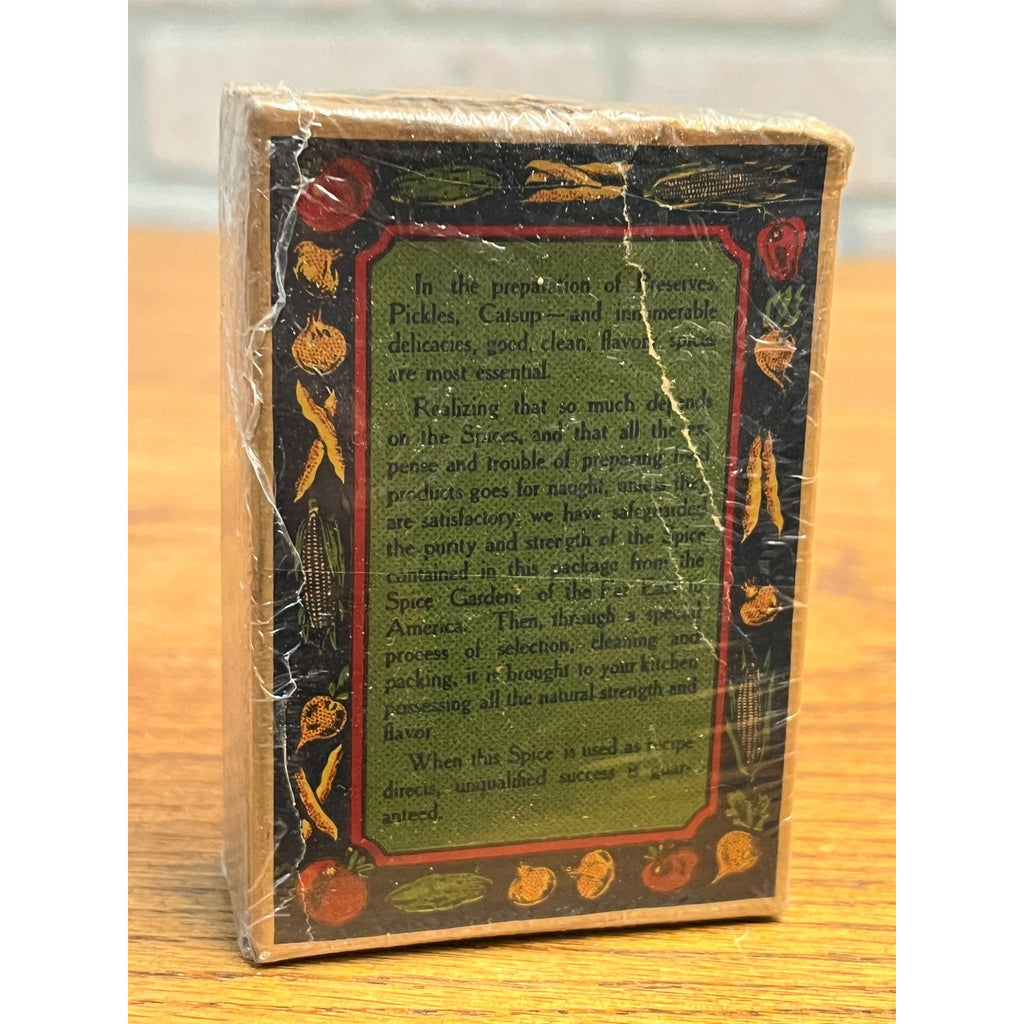 In the preparation of Preserves,
Pickles, Catsup—and innumerable
delicacies, good, clean, flavory spices
are most essential.
Realizing that so much depends
on the Spices, and that all the ex-
pense and trouble of preparing food
products goes for naught, unless they
are satisfactory, we have safeguarded
the purity and strength of the Spice
contained in this package from the
Spice Gardens of the Far East to
America. Then, through a special
process of selection, cleaning and
packing, it is brought to your kitchen
possessing all the natural strength and
flavor.
When this Spice is used as recipe
directs, unqualified success is guar-
anteed.